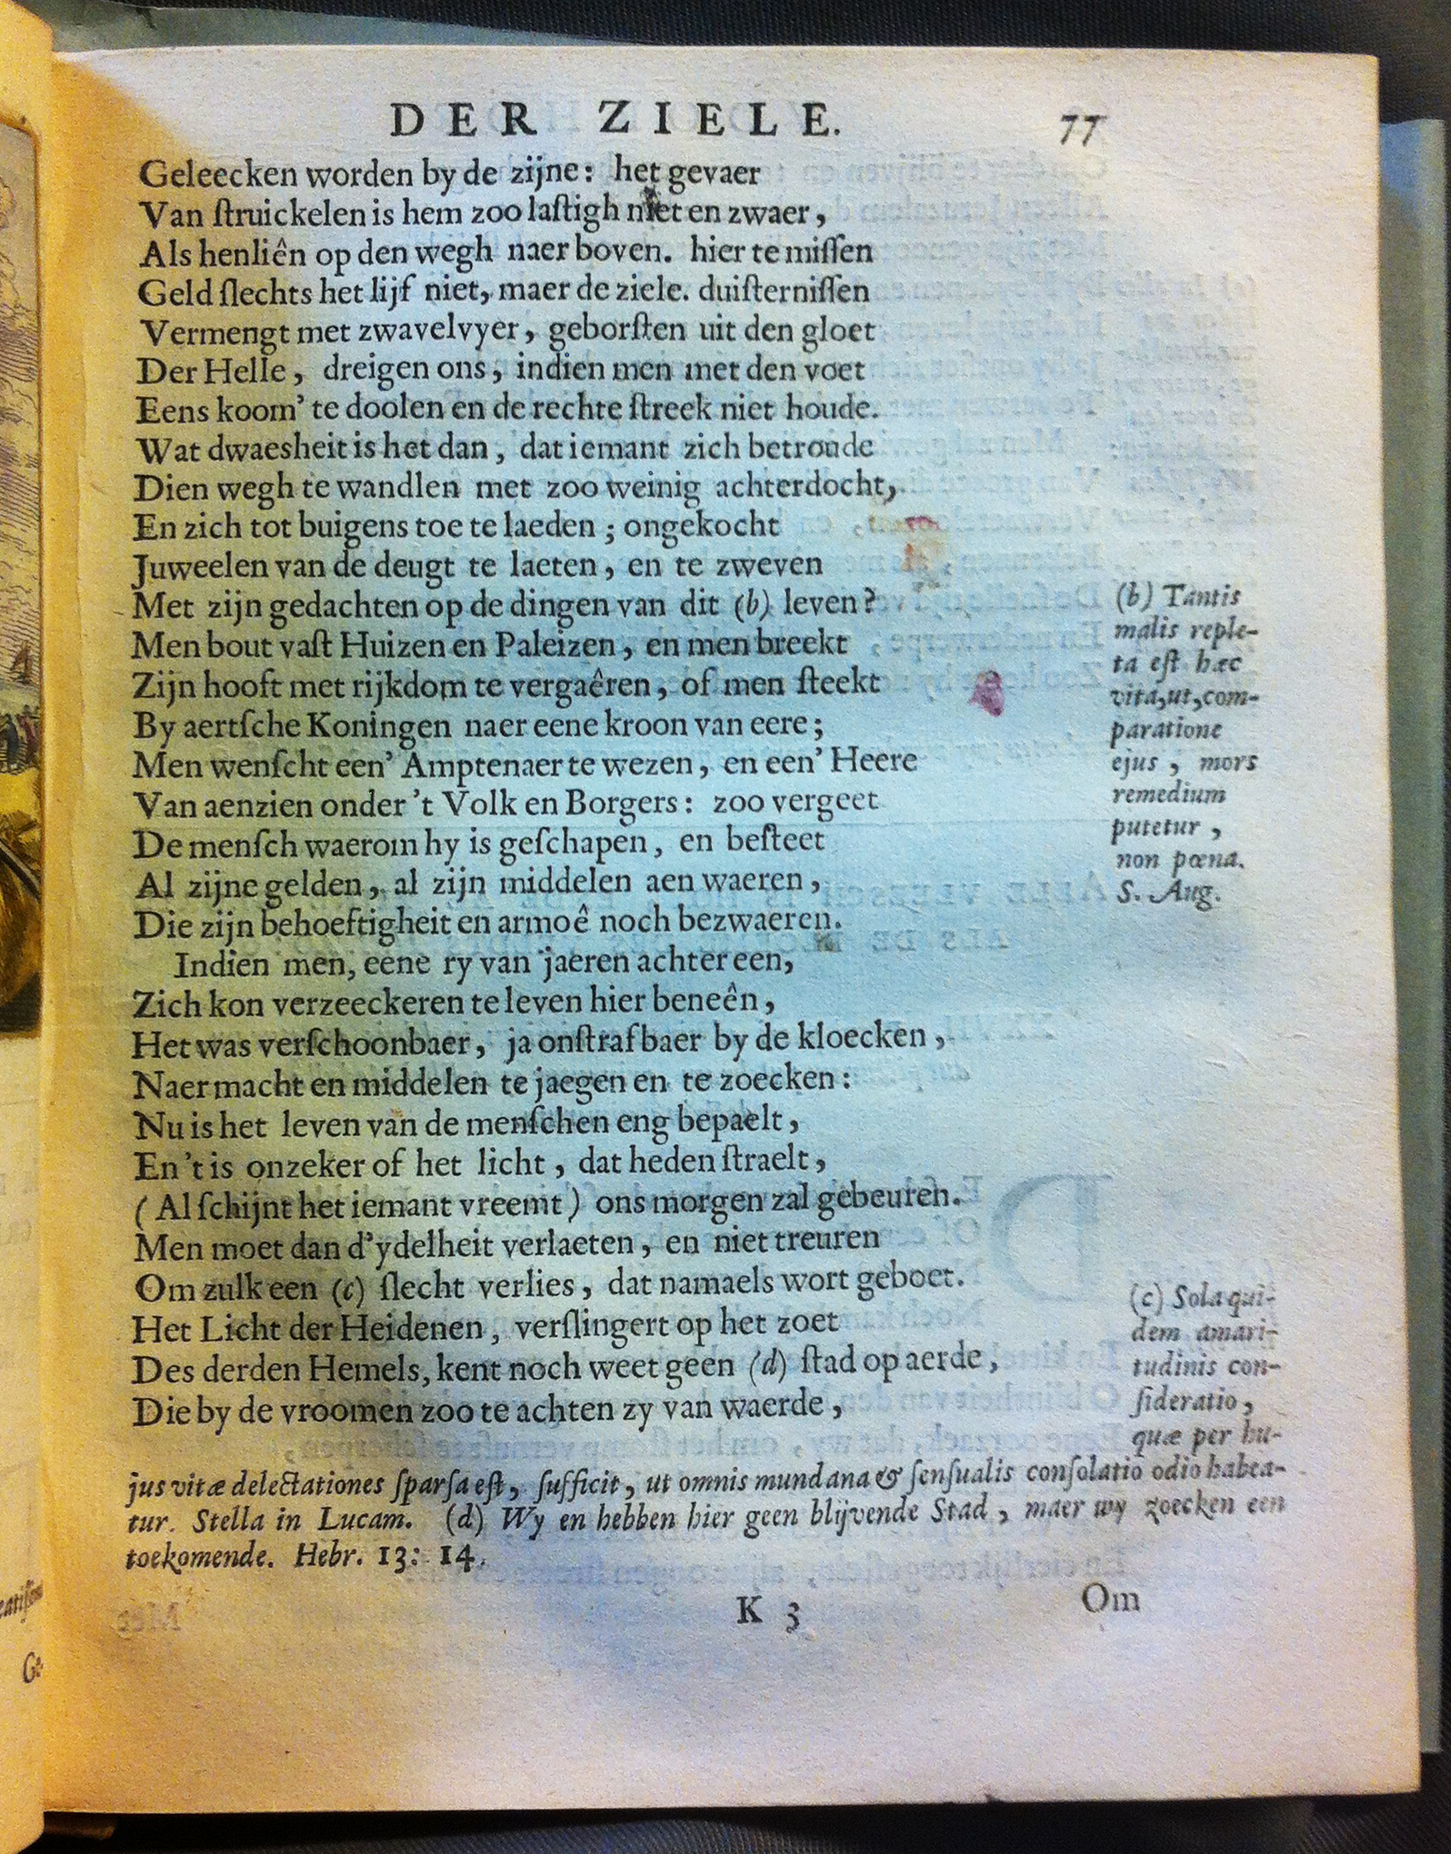 DER ZIELE. 77
Geleecken worden by de zijne: het gevaer
Van ſtruickelen is hem zoo laſtigh niet en zwaer,
Als henliên op den wegh naer boven. hier te miſſen
Geld ſlechts het lijf niet, maer de ziele. duiſterniſſen
Vermengt met zwavelvyer, geborſten uit den gloet
Der Helle, dreigen ons, indien men met den voet
Eens koom' te doolen en de rechte ſtreek niet houde.
Wat dwaesheit is het dan, dat iemant zich betroude
Dien wegh te wandlen met zoo weinig achterdocht,
En zich tot buigens toe te laeden; ongekocht
Juweelen van de deugt te laeten, en te zweven
Met zijn gedachten op de dingen van dit (b) leven?
Men bout vaſt Huizen en Paleizen, en men breekt
Zijn hooft met rijkdom te vergaêren, of men ſteekt
By aertſche Koningen naer eene kroon van eere;
Men wenſcht een' Amptenaer te wezen, en een' Heere
Van aenzien onder 't Volk en Borgers: zoo vergeet
De menſch waerom hy is geſchapen, en beſteet
Al zijne gelden, al zijn middelen aen waeren,
Die zijn behoeftigheit en armoê noch bezwaeren.
Indien men, eene ry van jaeren achter een,
Zich kon verzeeckeren te leven hier beneên,
Het was verſchoonbaer, ja onſtrafbaer by de kloecken,
Naer macht en middelen te jaegen en te zoecken:
Nu is het leven van de menſchen eng bepaelt,
En 't is onzeker of het licht, dat heden ſtraelt,
(Al ſchijnt het iemant vreemt) ons morgen zal gebeuren.
Men moet dan d'ydelheit verlaeten, en niet treuren
Om zulk een (c) ſlecht verlies, dat namaels wort geboet.
Het Licht der Heidenen, verſlingert op het zoet
Des derden Hemels, kent noch weet geen (d) ſtad op aerde,
Die by de vroomen zoo te achten zy van waerde,
(b) Tantis
malis reple-
ta eſt hæc
vita, ut, com-
paratione
ejus, mors
remedium
putetur,
non pœna.
S. Aug.
(c) Sola qui-
dem amari-
tudinis con-
ſideratio,
quæ per hu-
jus vitæ delectationes ſparſa eſt, ſufficit, ut omnis mundana & ſenſualis conſolatio odio habea-
tur. Stella in Lucam. (d) Wy en hebben hier geen blijvende Stad, maer wy zoecken een
toekomende. Hebr. 13: 14.
K 3 Om